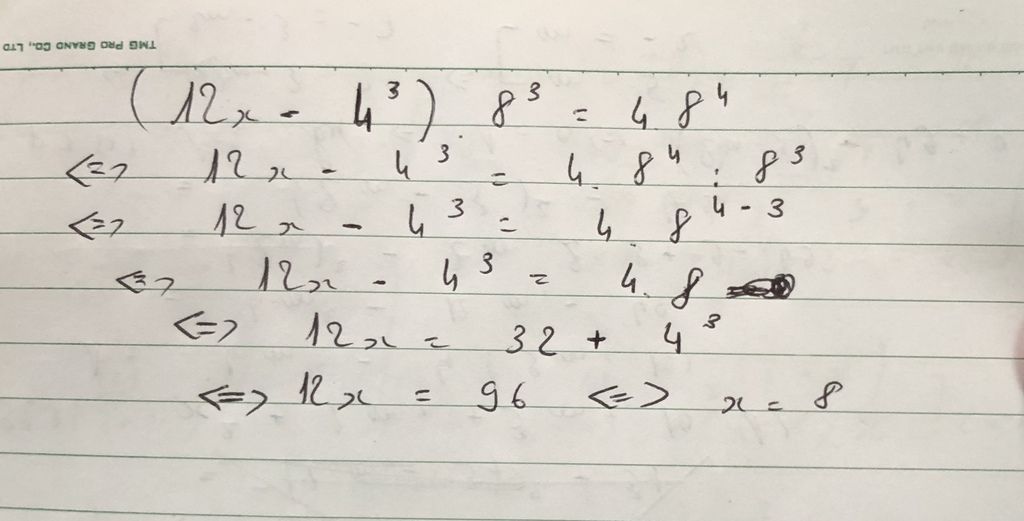 TMG PRO GRAND CO., LTD
(12x - 4³). 8³ = 4. 8⁴
<=> 12x - 4³ = 4. 8⁴ : 8³
<=> 12x - 4³ = 4. 8⁴⁻³
<=> 12x - 4³ = 4. 8
<=> 12x = 32 + 4³
<=> 12x = 96 <=> x = 8